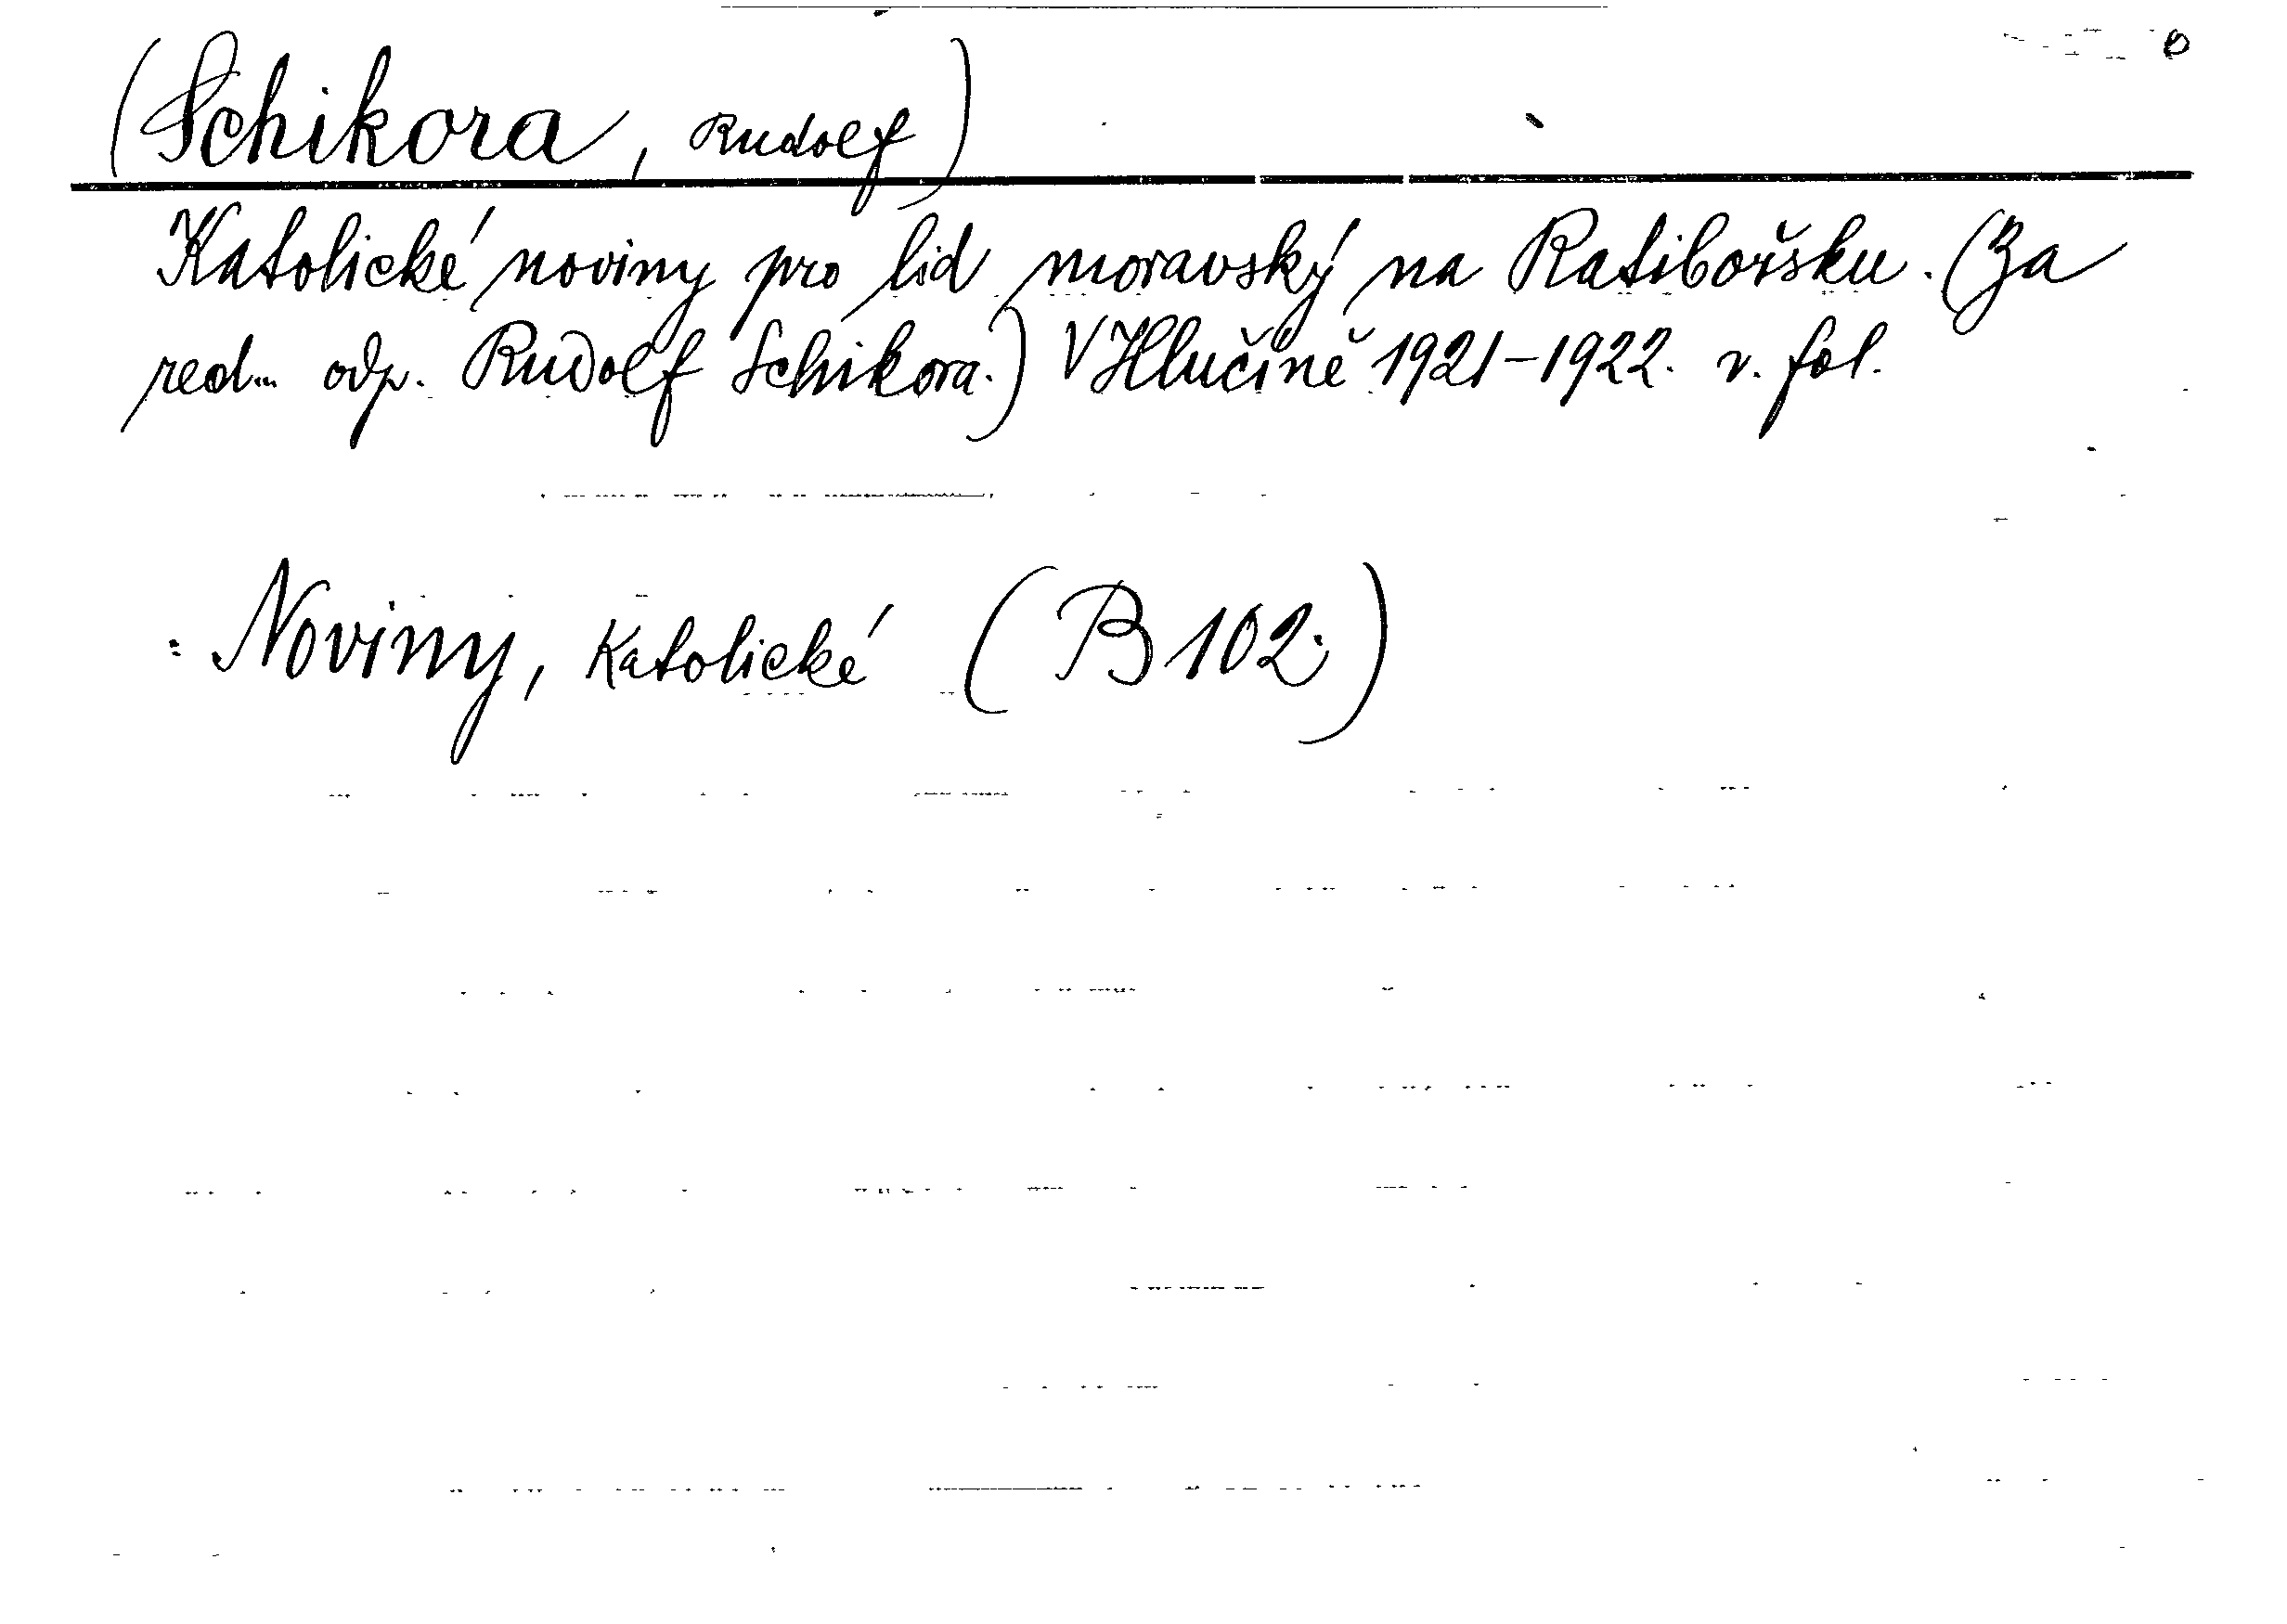 (Schikora, Rudolf)
Katolické noviny pro lid moravský na Ratibořsku. (Za
red... odp. Rudolf Schikora.) V Hlučíně 1921-1922. v. fol.
: Noviny, Katolické (B 102.)